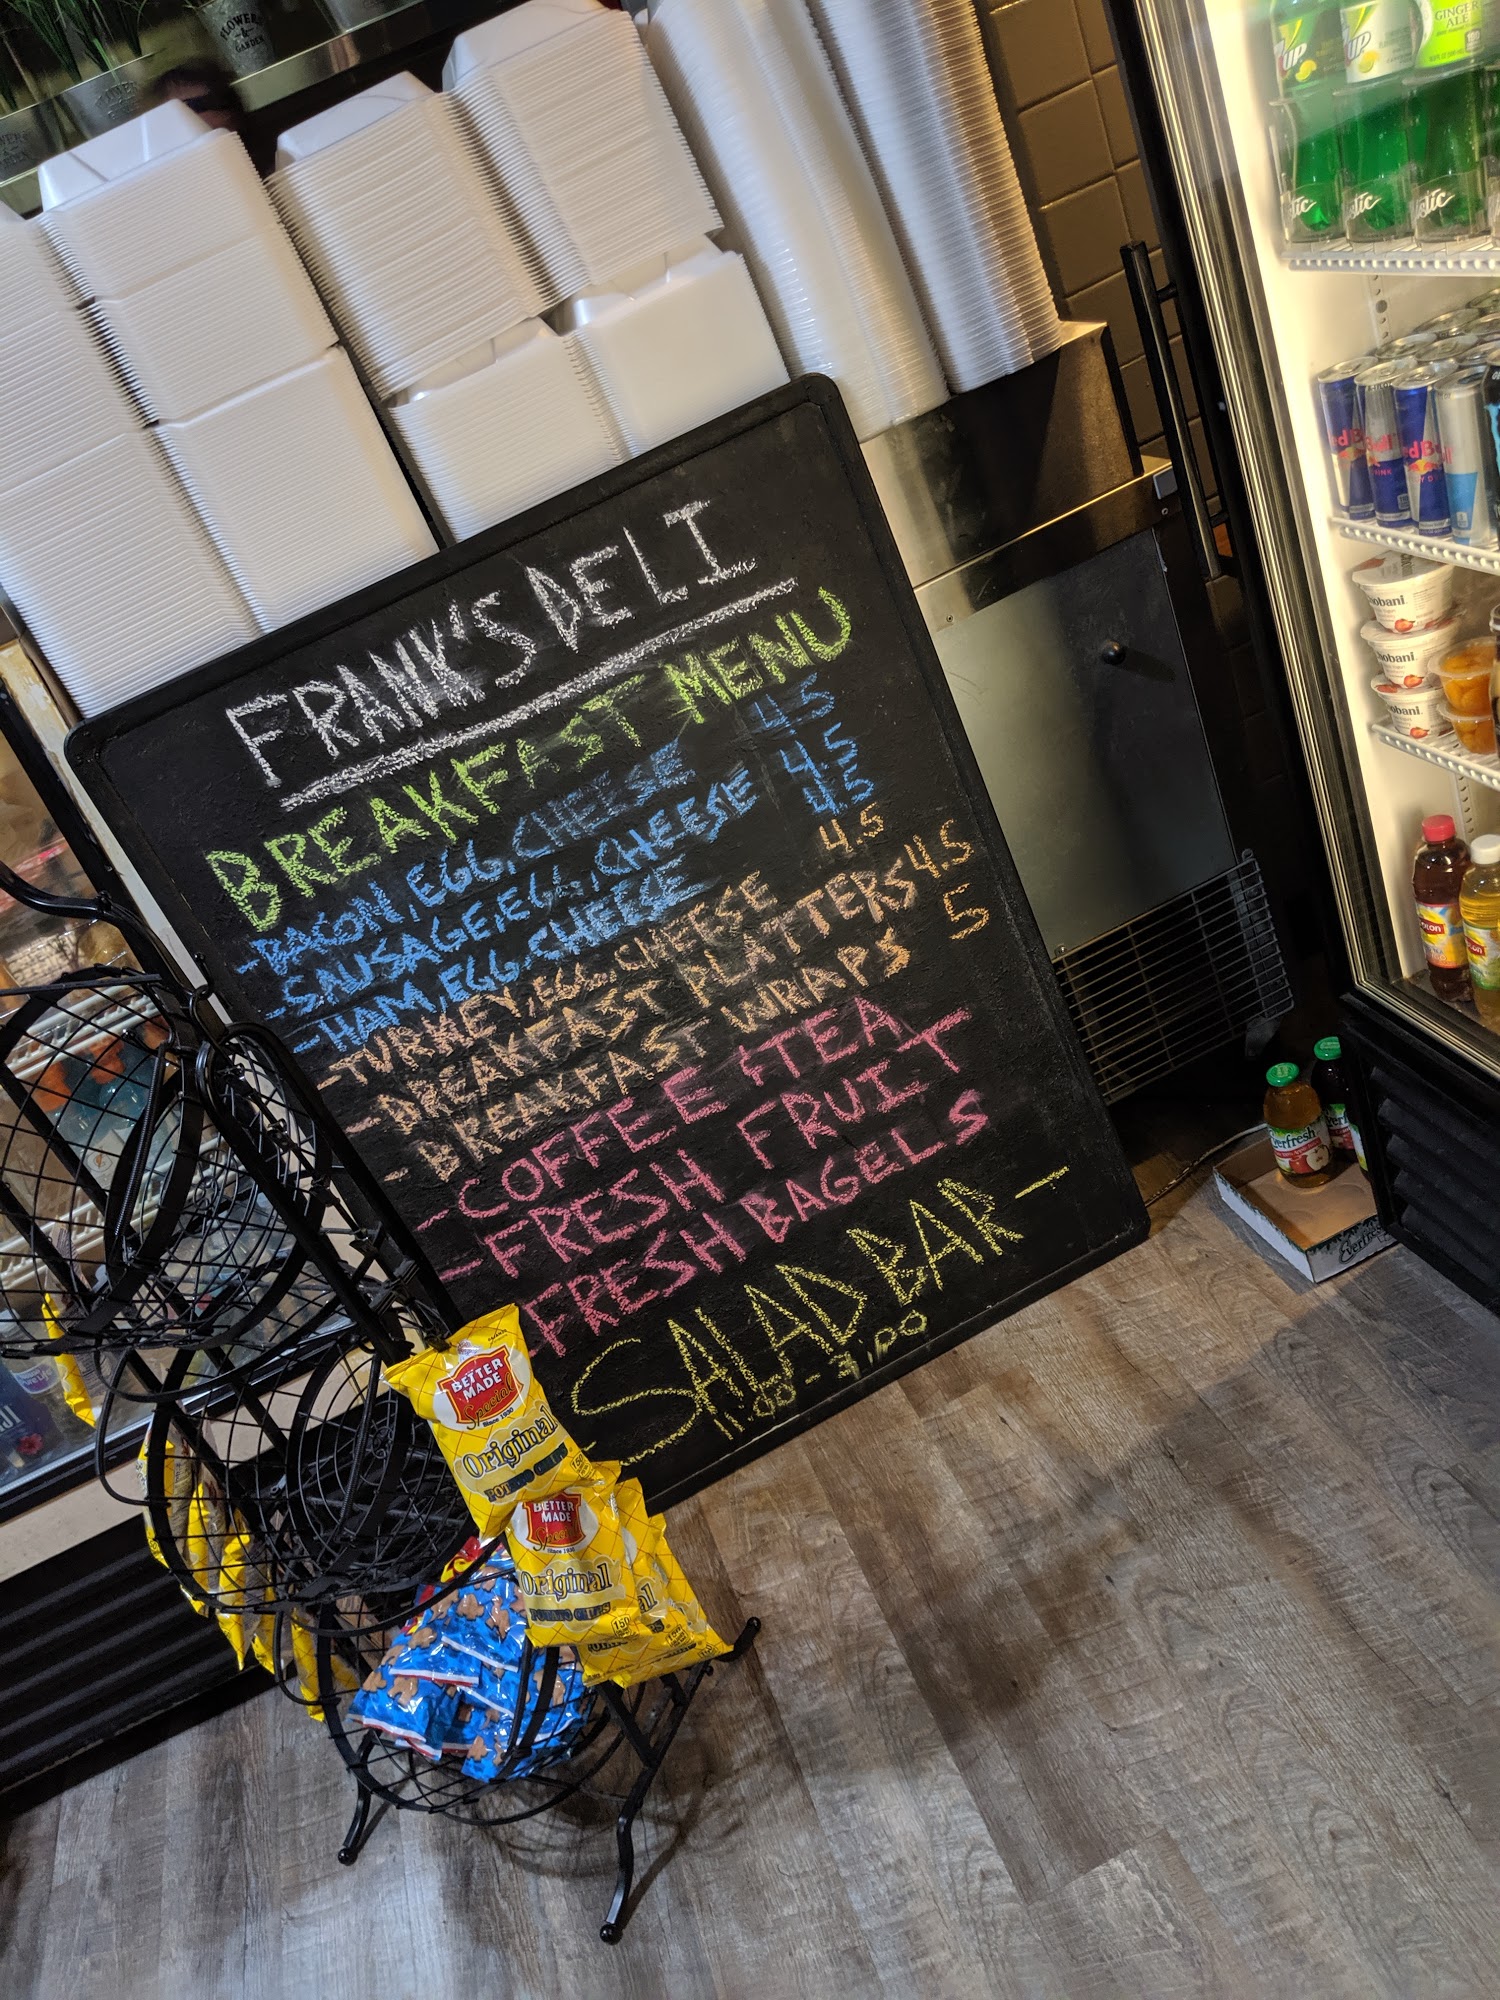 FRANK'S DELI
BREAKFAST MENU
-BACON, EGG, CHEESE 4.5
-SAUSAGE, EGG, CHEESE 4.5
-HAM, EGG, CHEESE 4.5
-TURKEY, EGG, CHEESE 4.5
-BREAKFAST PLATTERS 4.5
-BREAKFAST WRAPS 5
-COFFEE & TEA
-FRESH FRUIT
-FRESH BAGELS
-SALAD BAR-
BETTER
MADE
Special
Since 1930
Original
POTATO CHIPS
BETTER
MADE
Special
Since 1930
Original
POTATO CHIPS
150
FLOWERS
&
GARDEN
7UP
7UP
GINGER
ALE
Red Bull
Red Bull
Chobani
Chobani
Chobani
Lipton
Everfresh
Everfresh